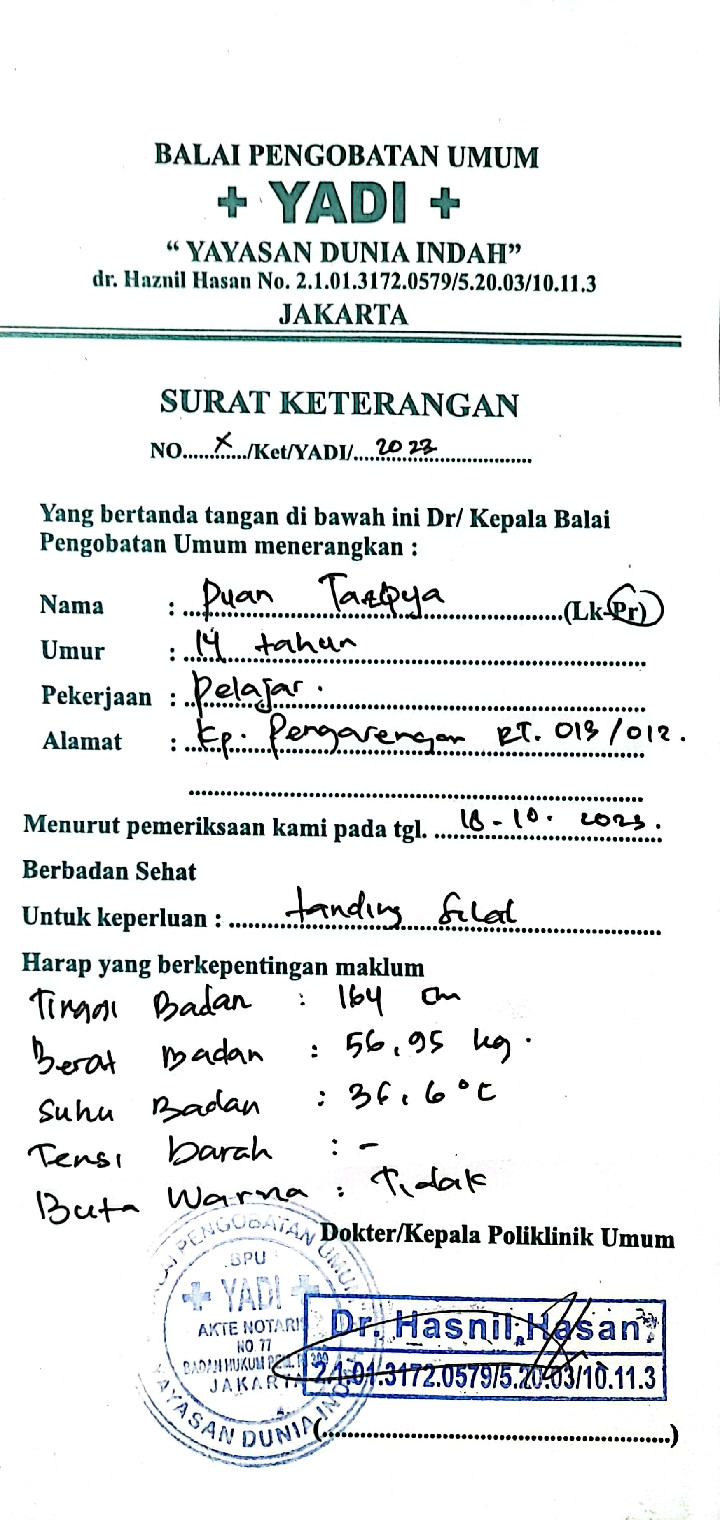 BALAI PENGOBATAN UMUM
+ YADI +
“ YAYASAN DUNIA INDAH”
dr. Haznil Hasan No. 2.1.01.3172.0579/5.20.03/10.11.3
JAKARTA
SURAT KETERANGAN
NO....X..../Ket/YADI/....2023....
Yang bertanda tangan di bawah ini Dr/ Kepala Balai
Pengobatan Umum menerangkan :
Nama : Puan (Lk-Pr)
Umur : 14 tahun
Pekerjaan : Pelajar.
Alamat : Kp. Pengarengan RT. 013/012.
Menurut pemeriksaan kami pada tgl. 18-10. 2023.
Berbadan Sehat
Untuk keperluan : tanding Silat
Harap yang berkepentingan maklum
Tinggi Badan : 164 cm
Berat Badan : 56,95 kg.
Suhu Badan : 36,6°C
Tensi Darah : -
Buta Warna : Tidak
Dokter/Kepala Poliklinik Umum
BALAI PENGOBATAN UMUM
BPU
+ YADI +
AKTE NOTARIS
NO. 77
BADAN HUKUM
JAKARTA
YAYASAN DUNIA INDAH
Dr. Hasnil Hasan
2.1.01.3172.0579/5.20.03/10.11.3
(....................)